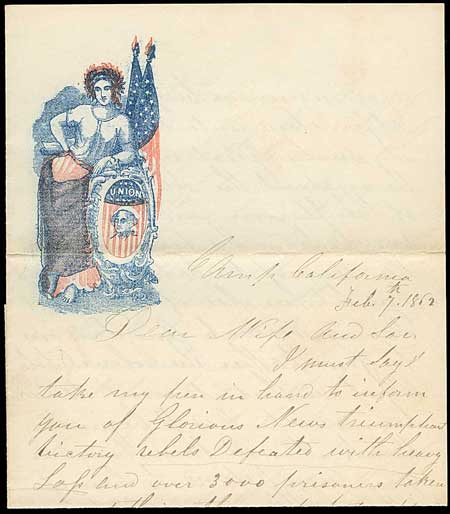 UNION
Camp California
Feb. 7th. 1862
Dear Wife and Son
I must Say
take my pen in hand to inform
you of Glorious News triumphant
victory rebels Defeated with heavy
Loss and over 3000 prisoners taken